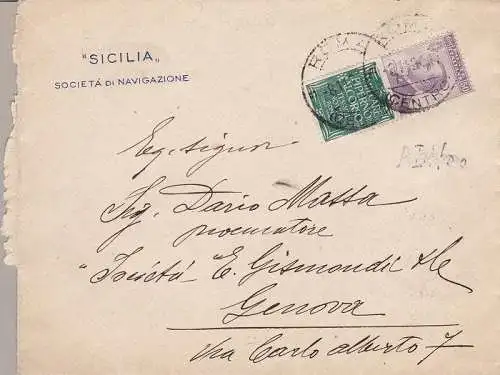 "SICILIA"
SOCIETÁ DI NAVIGAZIONE
ROMA
CENTRO
Eg. Signor
Sig. Dario Massa
procuratore
"Società" E. Gismondi & C
Genova
Via Carlo Alberto 7